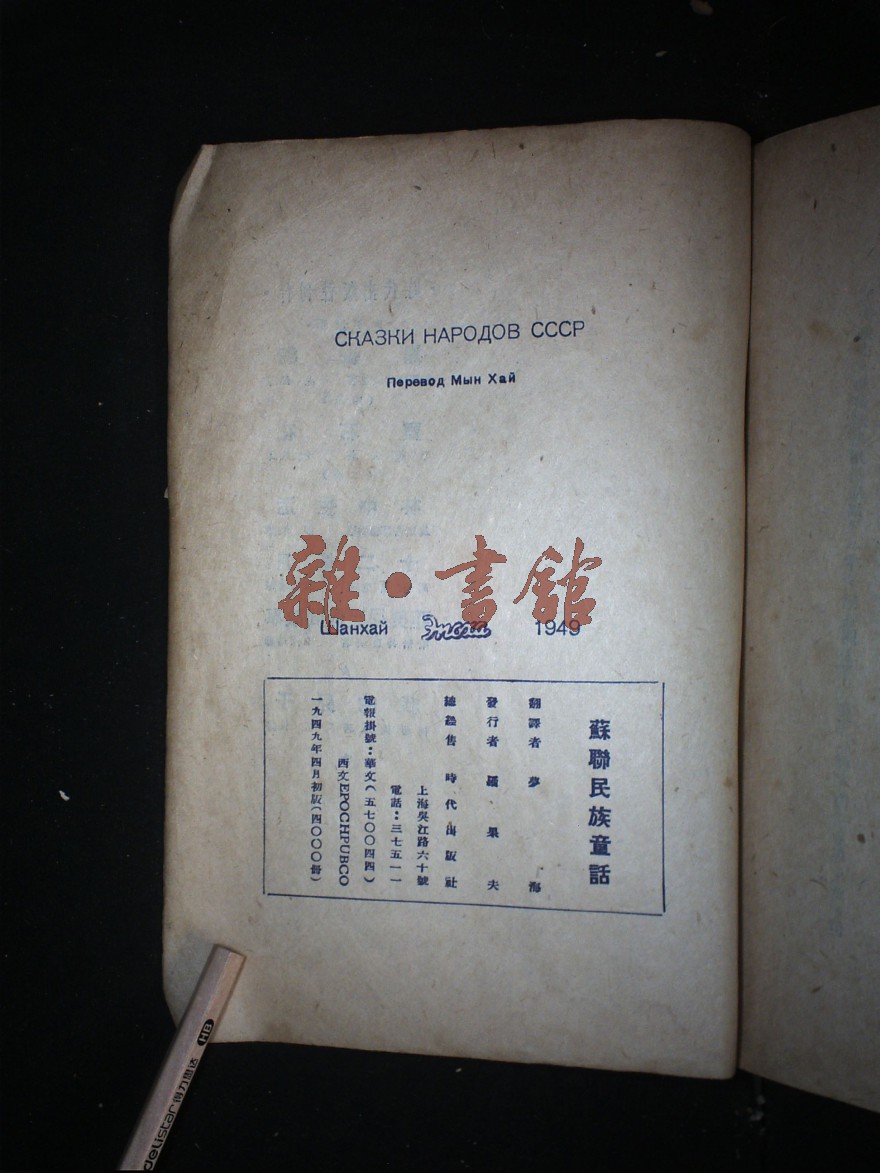 СКАЗКИ НАРОДОВ СССР
Перевод Мын Хай
雜·書館
Шанхай Эпоха 1949
蘇聯民族童話
翻譯者 夢海
發行者 羅果夫
總經售 時代出版社
上海吳江路六十號
電話：三七五一一
電報掛號：華文(五七〇〇四四)
西文EPOCHPUBCO
一九四九年四月初版(四〇〇〇冊)
HB
deli star 得力思达